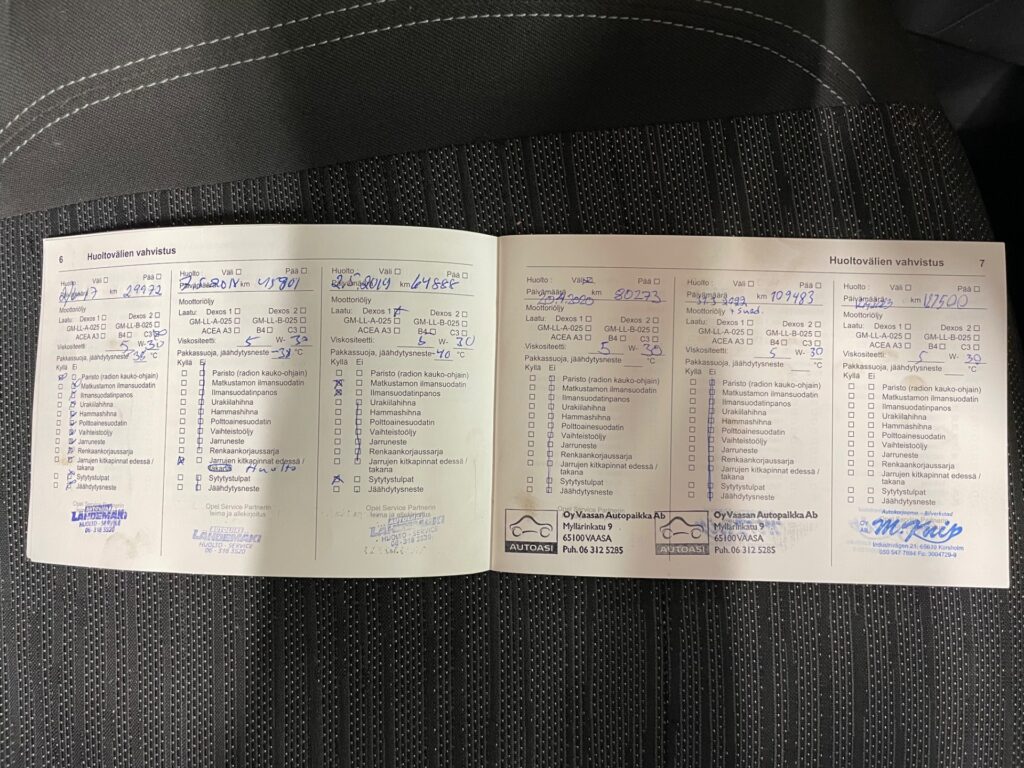 6 Huoltovälien vahvistus
Huolto: Väli ☐ Pää ☐
km 29972
Moottoriöljy
Laatu: Dexos 1 ☐ Dexos 2 ☐
GM-LL-A-025 ☐ GM-LL-B-025 ☐
ACEA A3 ☐ B4 ☐ C3
Viskositeetti 5 W- 30
Pakkassuoja, jäähdytysneste -38 °C
Kyllä Ei
Paristo (radion kauko-ohjain)
Matkustamon ilmansuodatin
Ilmansuodatinpanos
Urakiilahihna
Hammashihna
Polttoainesuodatin
Vaihteistoöljy
Jarruneste
Renkaankorjaussarja
Jarrujen kitkapinnat edessä /
takana
Sytytystulpat
Jäähdytysneste
Opel Service Partnerin
LANDEMÄKI
HUOLTO - SERVICE
06 - 318 5520
Huolto: Väli ☐ Pää ☐
Päivämäärä km 45801
Moottoriöljy
Laatu: Dexos 1 ☐ Dexos 2 ☐
GM-LL-A-025 ☐ GM-LL-B-025 ☐
ACEA A3 ☐ B4 ☐ C3 ☐
Viskositeetti 5 W- 30
Pakkassuoja, jäähdytysneste -38 °C
Kyllä Ei
Paristo (radion kauko-ohjain)
Matkustamon ilmansuodatin
Ilmansuodatinpanos
Urakiilahihna
Hammashihna
Polttoainesuodatin
Vaihteistoöljy
Jarruneste
Renkaankorjaussarja
Jarrujen kitkapinnat edessä /
takana Huolto
Sytytystulpat
Jäähdytysneste
Opel Service Partnerin
leima ja allekirjoitus
LANDEMÄKI
HUOLTO - SERVICE
06 - 318 5520
Huolto: Väli ☐ Pää ☐
2.5.2019 km 64888
Moottoriöljy
Laatu: Dexos 1 Dexos 2 ☐
GM-LL-A-025 ☐ GM-LL-B-025 ☐
ACEA A3 ☐ B4 ☐ C3 ☐
Viskositeetti 5 W- 30
Pakkassuoja, jäähdytysneste -40 °C
Kyllä Ei
Paristo (radion kauko-ohjain)
Matkustamon ilmansuodatin
Ilmansuodatinpanos
Urakiilahihna
Hammashihna
Polttoainesuodatin
Vaihteistoöljy
Jarruneste
Renkaankorjaussarja
Jarrujen kitkapinnat edessä /
takana
Sytytystulpat
Jäähdytysneste
Opel Service Partnerin
leima ja allekirjoitus
LANDEMÄKI
HUOLTO - SERVICE
06 - 318 5520
Huoltovälien vahvistus 7
Huolto: Väli Pää ☐
Päivämäärä km 80273
Moottoriöljy
Laatu: Dexos 1 ☐ Dexos 2 ☐
GM-LL-A-025 ☐ GM-LL-B-025 ☐
ACEA A3 ☐ B4 ☐ C3 ☐
Viskositeetti 5 W- 30
Pakkassuoja, jäähdytysneste °C
Kyllä Ei
Paristo (radion kauko-ohjain)
Matkustamon ilmansuodatin
Ilmansuodatinpanos
Urakiilahihna
Hammashihna
Polttoainesuodatin
Vaihteistoöljy
Jarruneste
Renkaankorjaussarja
Jarrujen kitkapinnat edessä /
takana
Sytytystulpat
Jäähdytysneste
Opel Service Partnerin
Oy Vaasan Autopaikka Ab
Myllärinkatu 9
65100 VAASA
Puh. 06 312 5285
AUTOASI
Huolto: Väli ☐ Pää ☐
Päivämäärä km 109483
Moottoriöljy
Laatu: Dexos 1 ☐ Dexos 2 ☐
GM-LL-A-025 ☐ GM-LL-B-025 ☐
ACEA A3 ☐ B4 ☐ C3 ☐
Viskositeetti 5 W- 30
Pakkassuoja, jäähdytysneste °C
Kyllä Ei
Paristo (radion kauko-ohjain)
Matkustamon ilmansuodatin
Ilmansuodatinpanos
Urakiilahihna
Hammashihna
Polttoainesuodatin
Vaihteistoöljy
Jarruneste
Renkaankorjaussarja
Jarrujen kitkapinnat edessä /
takana
Sytytystulpat
Jäähdytysneste
Oy Vaasan Autopaikka Ab
Myllärinkatu 9
65100 VAASA
Puh. 06 312 5285
AUTOASI
Huolto: Väli ☐ Pää ☐
Päivämäärä km 117500
Moottoriöljy
Laatu: Dexos 1 ☐ Dexos 2 ☐
GM-LL-A-025 ☐ GM-LL-B-025 ☐
ACEA A3 ☐ B4 ☐ C3 ☐
Viskositeetti 5 W- 30
Pakkassuoja, jäähdytysneste °C
Kyllä Ei
Paristo (radion kauko-ohjain)
Matkustamon ilmansuodatin
Ilmansuodatinpanos
Urakiilahihna
Hammashihna
Polttoainesuodatin
Vaihteistoöljy
Jarruneste
Renkaankorjaussarja
Jarrujen kitkapinnat edessä /
takana
Sytytystulpat
Jäähdytysneste
Autokorjaamo - Bilverkstad
M. Knip
Industrivägen 21, 65610 Korsholm